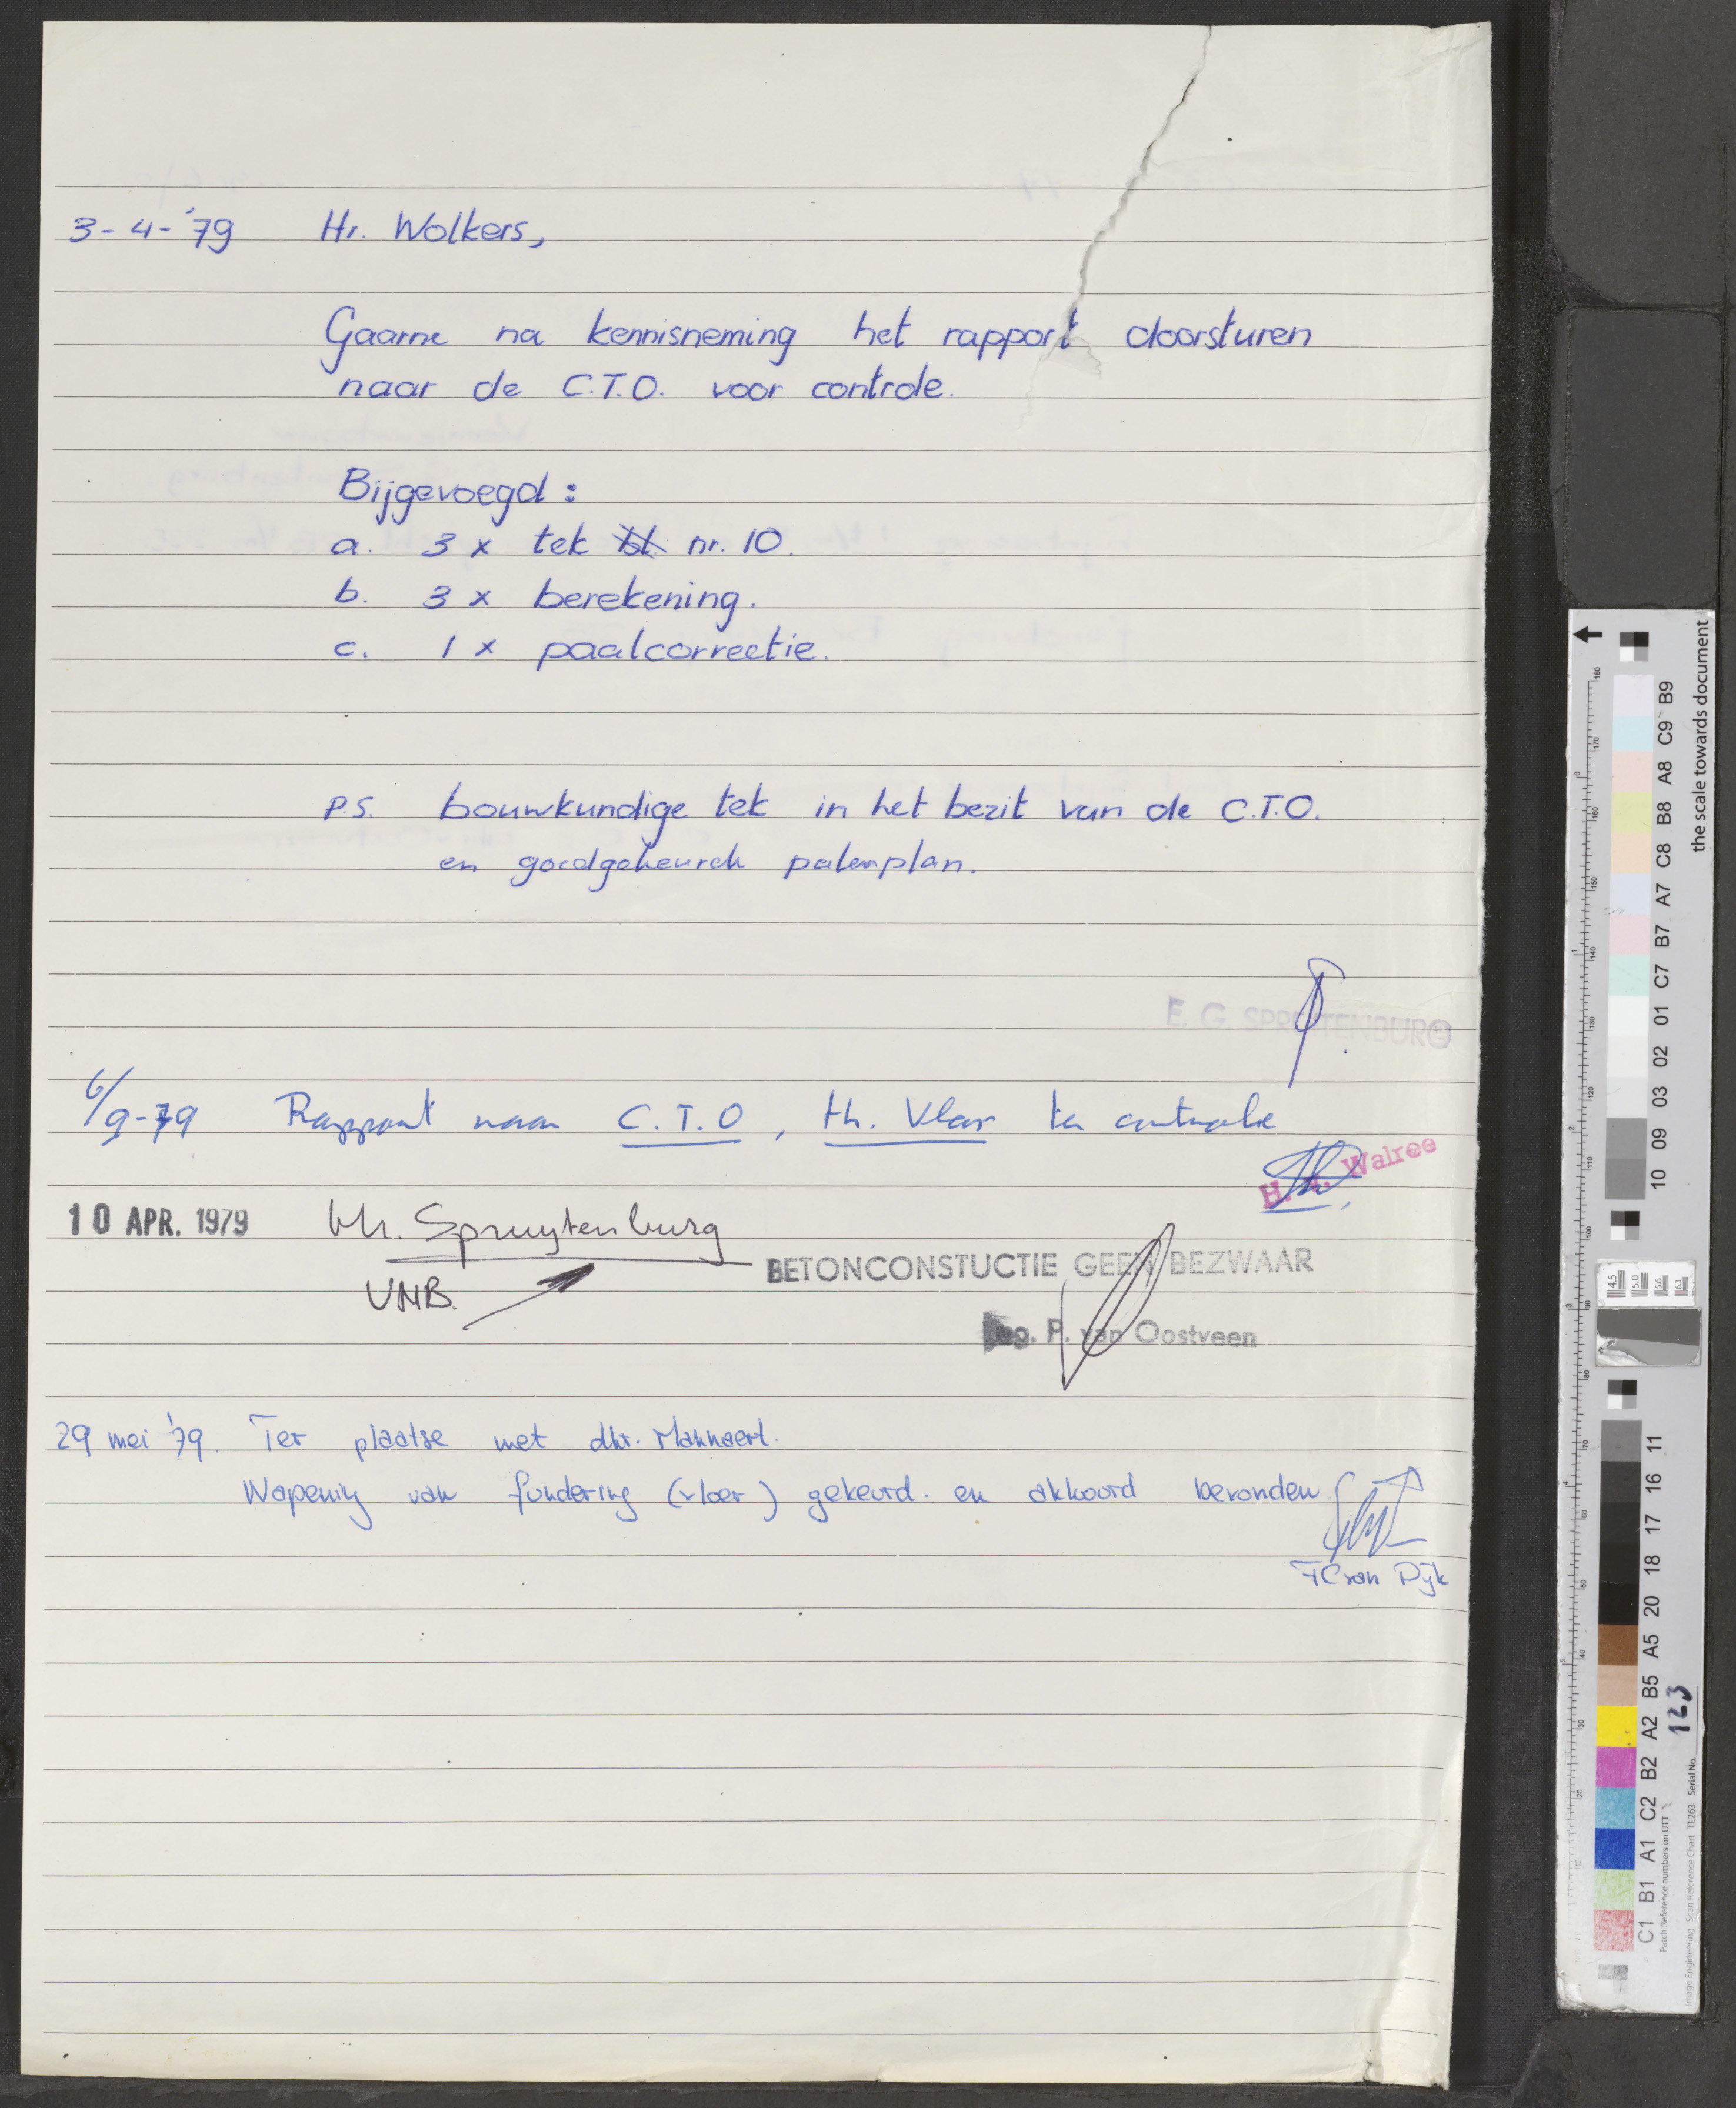 3-4-'79 Hr. Wolkers,
Gaarne na kennisneming het rapport doorsturen
naar de C.T.O. voor controle.
Bijgevoegd:
a. 3 x tek nr. 10.
b. 3 x berekening.
c. 1 x paalcorrectie.
P.S. bouwkundige tek in het bezit van de C.T.O.
en goedgekeurde palenplan.
E. G. SPRUITENBURG
6/9-79 Rapport naar C.T.O, Hr. Vlar ter controle
H. Walree
10 APR. 1979 Hr. Spruytenburg
BETONCONSTUCTIE GEEN BEZWAAR
VMB.
P. van Oostveen
29 mei '79. Ter plaatse met dhr. Mannaert.
Wapening van fundering (vloer) gekeurd. en akkoord bevonden
FC van Dijk
the scale towards document
B9
C9
A8
B8
C8
A7
B7
C7
01
02
03
09
10
11
16
17
18
20
A5
B5
A2
B2
C2
A1
B1
C1
Patch Reference numbers on UTT
Image Engineering Scan Reference Chart TE263 Serial No. 123